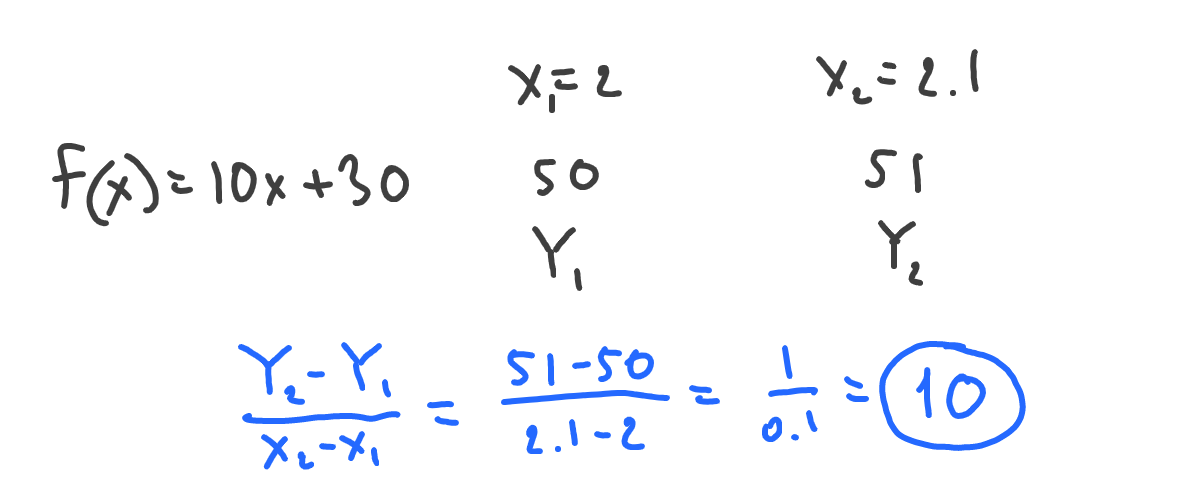 X₁=2 X₂=2.1
f(x)=10x+30 50 51
Y₁ Y₂
(Y₂-Y₁)/(X₂-X₁) = (51-50)/(2.1-2) = 1/0.1 = 10